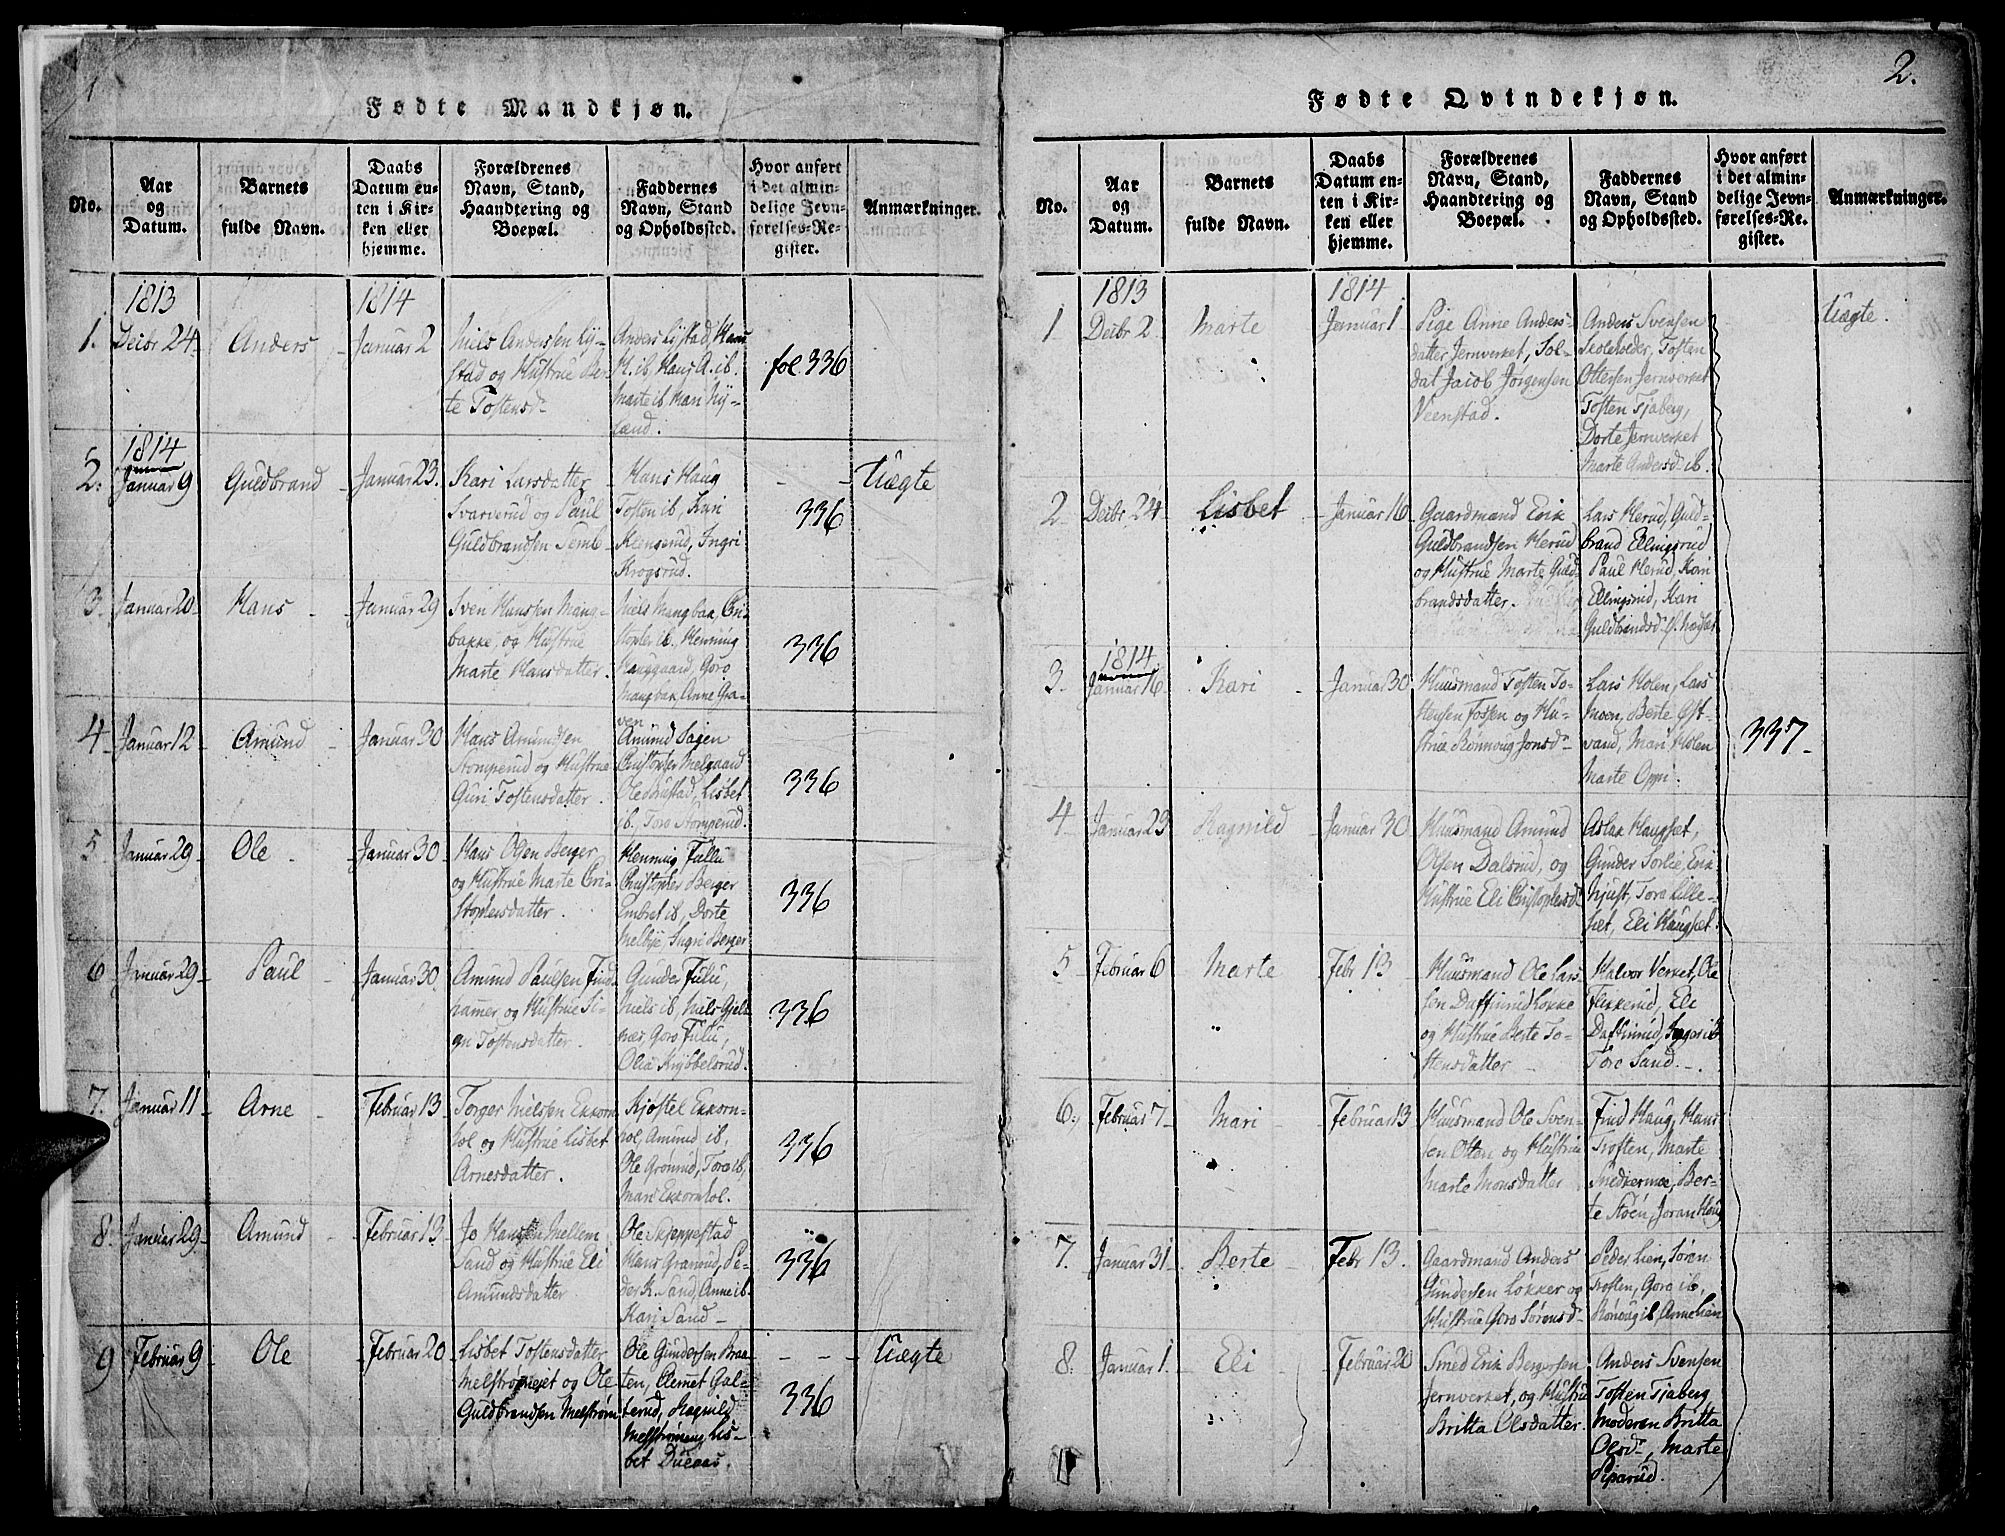 1
Fødte Mandkjøn.
No.
Aar
og
Datum.
Barnets
fulde Navn.
Daabs
Datum en-
ten i Kir-
ken eller
hjemme.
Forældrenes
Navn, Stand,
Haandtering og
Boepæl.
Faddernes
Navn, Stand
og Opholdssted.
Hvor anført
i det almin-
delige Jevn-
førelses-Re-
gister.
Anmærkninger.
1813
1814
1. Decbr 24 Anders Januar 2
Niels Andersen Ly-
stad og Hustrue Ber-
te Tostensdr
Anders Lystad, Hans
H. ib. Hans A. ib.
Marte ib. Mari Ny-
land.
fol. 336
1814
2. Januar 9 Guldbrand Januar 23.
Kari Larsdatter
Svarverud og Paul
Guldbrandsen Semb
Hans Haug
Tosten ib, Kari
Klemserud, Ingri
Krogsrud.
336
Uægte
3. Januar 20 Hans Januar 29
Sven Hansen Mang-
bakke, og Hustrue
Marte Hansdatter.
Niels Mangbak, Cri-
stopher ib. Henning
Hauggaard, Goro
Mangbak, Anne Gra-
ven
336
4 Januar 12 Amund Januar 30
Hans Amundsen
Stomperud og Hustrue
Guri Tostensdatter.
Amund Sagen
Christopher Melgaard
Ole Lihustad, Lisbet
ib. Toro Stomperud.
336
5. Januar 29 Ole Januar 30
Hans Olsen Berger
og Hustrue Marte Cri-
stophersdatter.
Henning Fullu
Christopher Berger
Embret ib, Dorte
Melbye Ingri Berger
336
6 Januar 29 Paul Januar 30
Amund Paulsen Find-
hamer og Hustrue Si-
gn Tostensdatter.
Gunder Fulu,
Niels ib, Niels Gjel-
næs, Goro Fulu,
Olia Knybbelsrud.
336
7. Januar 11 Arne Februar 13
Torger Nielsen Ekkorn-
hol og Hustrue Lisbet
Arnesdatter.
Kjostel Ekkorn-
hol, Amund ib,
Ole Grønrud, Tora ib,
Mari Ekkornhol.
336
8. Januar 29 Amund Februar 13
Jo Hansen Mellem
Sand og Hustrue Eli
Amundsdatter.
Ole Skjeppestad
Hans Granrud, Pe-
der K. Sand, Anne ib.
Kari Sand
336
9 Februar 9 Ole Februar 20
Lisbet Tostensdatter
Melstromeiet og Ole
Guldbrandsen Melstrøm
Ole Gundersen Braa-
ten, Clemet Gal-
terud, Ragnild
Melstrømeng Lis-
bet Dueaas.
336
Uægte
2.
Fødte Qvindekjøn.
No.
Aar
og
Datum.
Barnets
fulde Navn.
Daabs
Datum en-
ten i Kir-
ken eller
hjemme.
Forældrenes
Navn, Stand,
Haandtering og
Boepæl.
Faddernes
Navn, Stand
og Opholdssted.
Hvor anført
i det almin-
delige Jevn-
førelses-Re-
gister.
Anmærkninger.
1813
1814
1 Decbr 2 Marte Januar 1
Pige Anne Anders-
datter Jernverket, Sol-
dat Jacob Jørgensen
Veenstad.
Anders Svensen
Skoleholder, Tosten
Ottersen Jernverket
Tosten Tjaberg,
Dorte Jernverket
Marte Andersdr ib.
Uægte.
2 Decbr 24 Lisbet Januar 16
Gaardmand Erik
Guldbrandsen Herud
og Hustrue Marte Guld-
brandsdatter.
Lars Herud, Guld-
brand Ellingsrud
Paul Herud, Kari
Ellingsrud, Kari
Guldbrandsdr
1814
3. Januar 16 Kari Januar 30
Huusmand Tosten To-
stensen Fossen og Hu-
strue Rønnoug Jonsdr
Lars Holen, Lars
Moen, Berte Øst-
vand, Mari Holen
Marte Oppi.
337
4 Januar 23 Ragnild Januar 30
Huusmand Amund
Olsen Dalsrud, og
Hustrue Eli Christophersdr
Aslak Haugset,
Gunder Torlie, Erik
Njust, Tora Lille-
set, Eli Haugset.
5 Februar 6 Marte Febr 13
Huusmand Ole Lar-
sen Daffinrud Løkke
og Hustrue Berte To-
stensdatter
Halvor Verket, Ole
Flikkerud, Eli
Daffinrud, Ingar ib
Toro Sand.
6. Februar 7 Mari Februar 13
Huusmand Ole Sven-
sen Olten og Hustrue
Marte Monsdatter
Find Haug, Hans
Troften, Marte
Snedkermoe, Ber-
te Støen, Joran Haug
7. Januar 31 Berte Febr 13.
Gaardmand Anders
Gundersen Løkker og
Hustrue Goro Sørensdr
Peder Lien, Søren
Troften, Goro ib,
Rønoug ib, Anne Lien
8. Januar 1. Eli Februar 20
Smed Erik Bergersen
Jernverket, og Hustrue
Britta Olsdatter.
Anders Svensen
Tosten Tjaberg
Moderen Britta
Olsdr, Marte
Piparud.